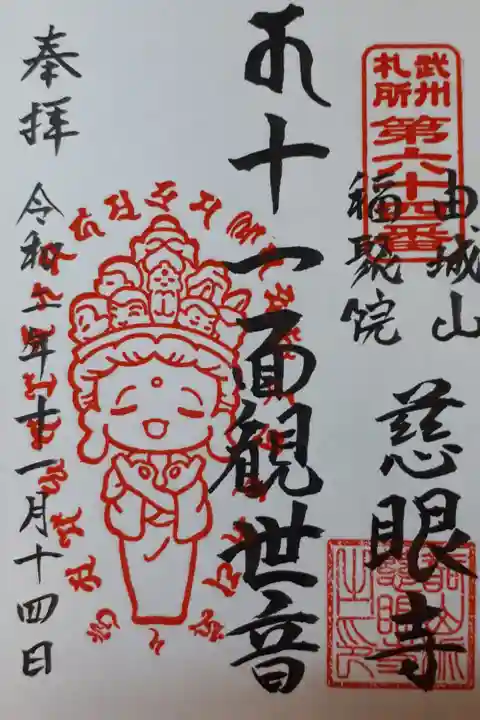 武州
札所
第六十四番
由城山
福聚院
慈眼寺
十一面観世音
奉拝
令和二年十一月十四日